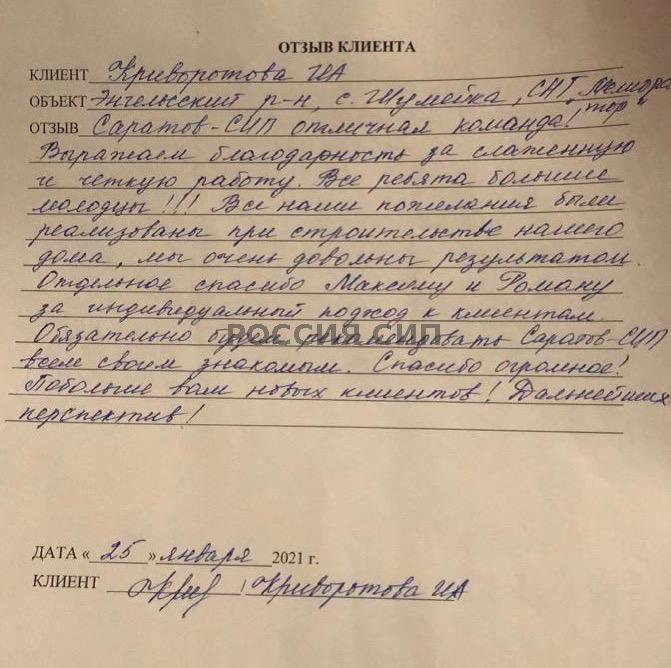 ОТЗЫВ КЛИЕНТА
КЛИЕНТ Криворотова ИА
ОБЪЕКТ Энгельсский р-н, с. Шумейка, СНТ "Мелиоратор"
ОТЗЫВ Саратов-СИП отличная команда!
Выражаем благодарность за слаженную
и четкую работу. Все ребята большие
молодцы!!! Все наши пожелания были
реализованы при строительстве нашего
дома, мы очень довольны результатом.
Отдельное спасибо Максиму и Роману
за индивидуальный подход к клиентам.
Обязательно будем рекомендовать Саратов-СИП
РОССИЯ СИП
всем своим знакомым. Спасибо огромное!
Побольше вам новых клиентов! Дальнейших
перспектив!
ДАТА « 25 » января 2021 г.
КЛИЕНТ / Криворотова ИА